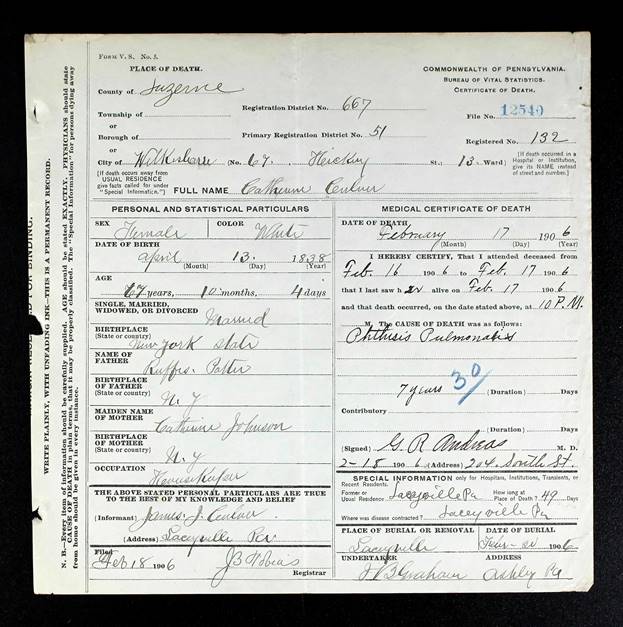 FORM V. S. No. 5.
PLACE OF DEATH.
County of Luzerne
Township of
or
Borough of
or
City of Wilkesbarre (No. 67 Hickory St.; 13 Ward)
[If death occurs away from
USUAL RESIDENCE
give facts called for under
"Special Information."]
COMMONWEALTH OF PENNSYLVANIA.
BUREAU OF VITAL STATISTICS.
CERTIFICATE OF DEATH.
Registration District No. 667
File No. 12540
Primary Registration District No. 51
Registered No. 132
[If death occurred in a
Hospital or Institution,
give its NAME instead
of street and number.]
FULL NAME Catherine
PERSONAL AND STATISTICAL PARTICULARS
SEX Female COLOR White
DATE OF BIRTH
April 13 1838
(Month) (Day) (Year)
AGE
67 years, 10 months, 4 days
SINGLE, MARRIED,
WIDOWED, OR DIVORCED Married
BIRTHPLACE
(State or country) New York State
NAME OF
FATHER Ruffis Potter
BIRTHPLACE
OF FATHER
(State or country) N. Y
MAIDEN NAME
OF MOTHER Catherine Johnson
BIRTHPLACE
OF MOTHER
(State or country) N. Y
OCCUPATION
HouseKeeper
THE ABOVE STATED PERSONAL PARTICULARS ARE TRUE
TO THE BEST OF MY KNOWLEDGE AND BELIEF
(Informant) James J.
(Address) Laceyville Pa
Filed Feb 18 1906 J B Tobias
Registrar
MEDICAL CERTIFICATE OF DEATH
DATE OF DEATH
February 17 1906
(Month) (Day) (Year)
I HEREBY CERTIFY, That I attended deceased from
Feb. 16 1906 to Feb. 17 1906
that I last saw her alive on Feb. 17 1906
and that death occurred, on the date stated above, at 10 P.M.
M. The CAUSE OF DEATH was as follows:
Phthisis Pulmonalis
30
7 years (Duration) Days
Contributory
(Duration) Days
(Signed) G. R Andreas M. D.
2-18 1906 (Address) 204 St.
SPECIAL INFORMATION only for Hospitals, Institutions, Transients, or
Recent Residents.
Former or
Usual Residence Laceyville Pa How long at
Place of Death? 49 Days
Where was disease contracted? Laceyville Pa
PLACE OF BURIAL OR REMOVAL DATE OF BURIAL
Laceyville Febr-20 1906
UNDERTAKER ADDRESS
Graham Ashley Pa
WRITE PLAINLY, WITH UNFADING INK—THIS IS A PERMANENT RECORD.
N. B.—Every item of information should be carefully supplied. AGE should be stated EXACTLY. PHYSICIANS should state
CAUSE OF DEATH in plain terms, that it may be properly classified. The "Special Information" for persons dying away
from home should be given in every instance.
FOR BINDING.